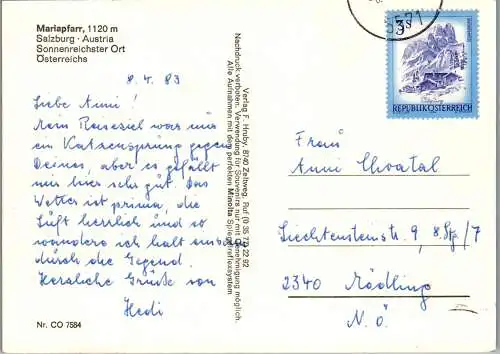 Mariapfarr, 1120 m
Salzburg · Austria
Sonnenreichster Ort
Österreichs
8. 4. 83
Liebe Anni!
Mein Reiseziel war nur
ein Katzensprung gegen
Deines, aber es gefällt
mir hier sehr gut. Das
Wetter ist prima, die
Luft herrlich und so
wandere ich halt
durch die Gegend.
Herzliche Grüße von
Hedi
Nr. CO 7584
Verlag F. Hruby, 8740 Zeltweg, Ruf (0 35 77) 22 92
Nachdruck verboten. Verwendung für Souvenirs nur mit Genehmigung möglich.
Alle Aufnahmen mit dem perfekten Minolta Spiegelreflexsystem
5571
3 S
REPUBLIK ÖSTERREICH
Frau
Anni Chvatal
Liechtensteinstr. 9, 8. Stg/7
2340 Mödling
N.Ö.